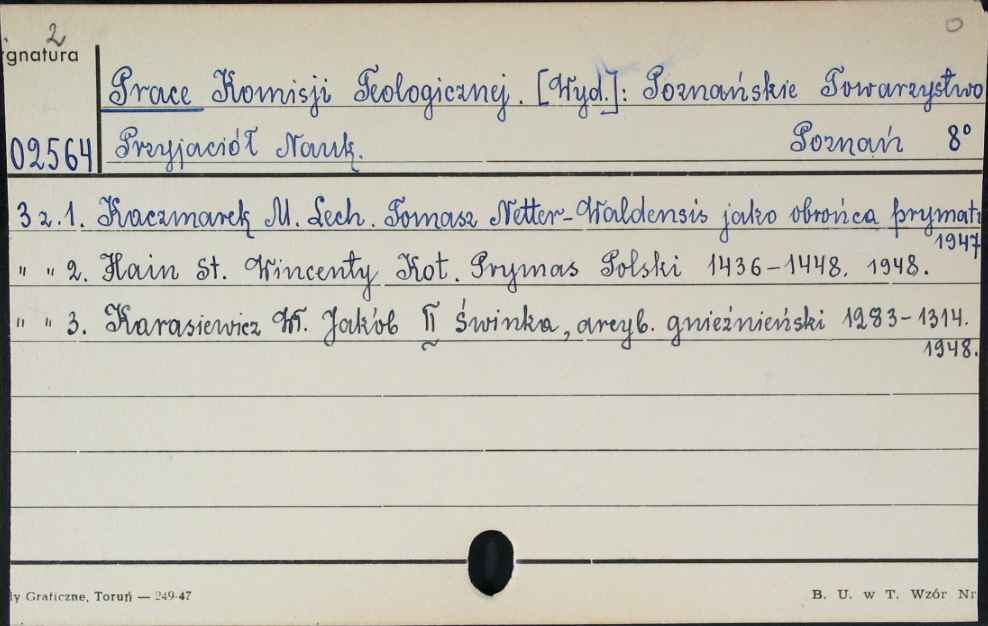 2
0
gnatura
Prace Komisji Teologicznej. [Wyd.]: Poznańskie Towarzystwo
02564 Przyjaciół Nauk. Poznań 8°
3 z. 1. Kaczmarek M. Lech. Tomasz Netter-Waldensis jako obrońca prymatu
1947
" " 2. Hain St. Wincenty Kot. Prymas Polski 1436-1448. 1948.
" " 3. Karasiewicz W. Jakób II Świnka, arcyb. gnieźnieński 1283-1314.
1948.
dy Graficzne, Toruń — 249-47 B. U. w T. Wzór Nr